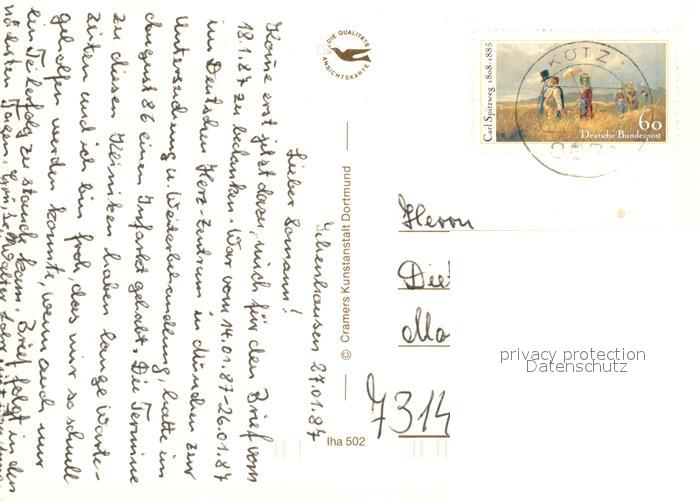 Ichenhausen 27.01.87
Lieber Somann!
Komme erst jetzt dazu, mich für den Brief vom
18.1.87 zu bedanken. War vom 14.01.87-26.01.87
im Deutschen Herz-Zentrum in München zur
Untersuchung u. Weiterbehandlung, hatte im
August 86 einen Infarkt gehabt. Die Termine
zu diesen Kliniken haben lange Warte-
zeiten und ich bin froh, dass mir so schnell
geholfen werden konnte, wenn auch nur
ein Teilerfolg zu stauch kam. Brief folgt in den
nächsten Tagen.
DIE QUALITÄTS
ANSICHTSKARTE
© Cramers Kunstanstalt Dortmund
Iha 502
KÖTZ
Carl Spitzweg 1808-1885
60
Deutsche Bundespost
Herrn
Die
Mo
7314
privacy protection
Datenschutz